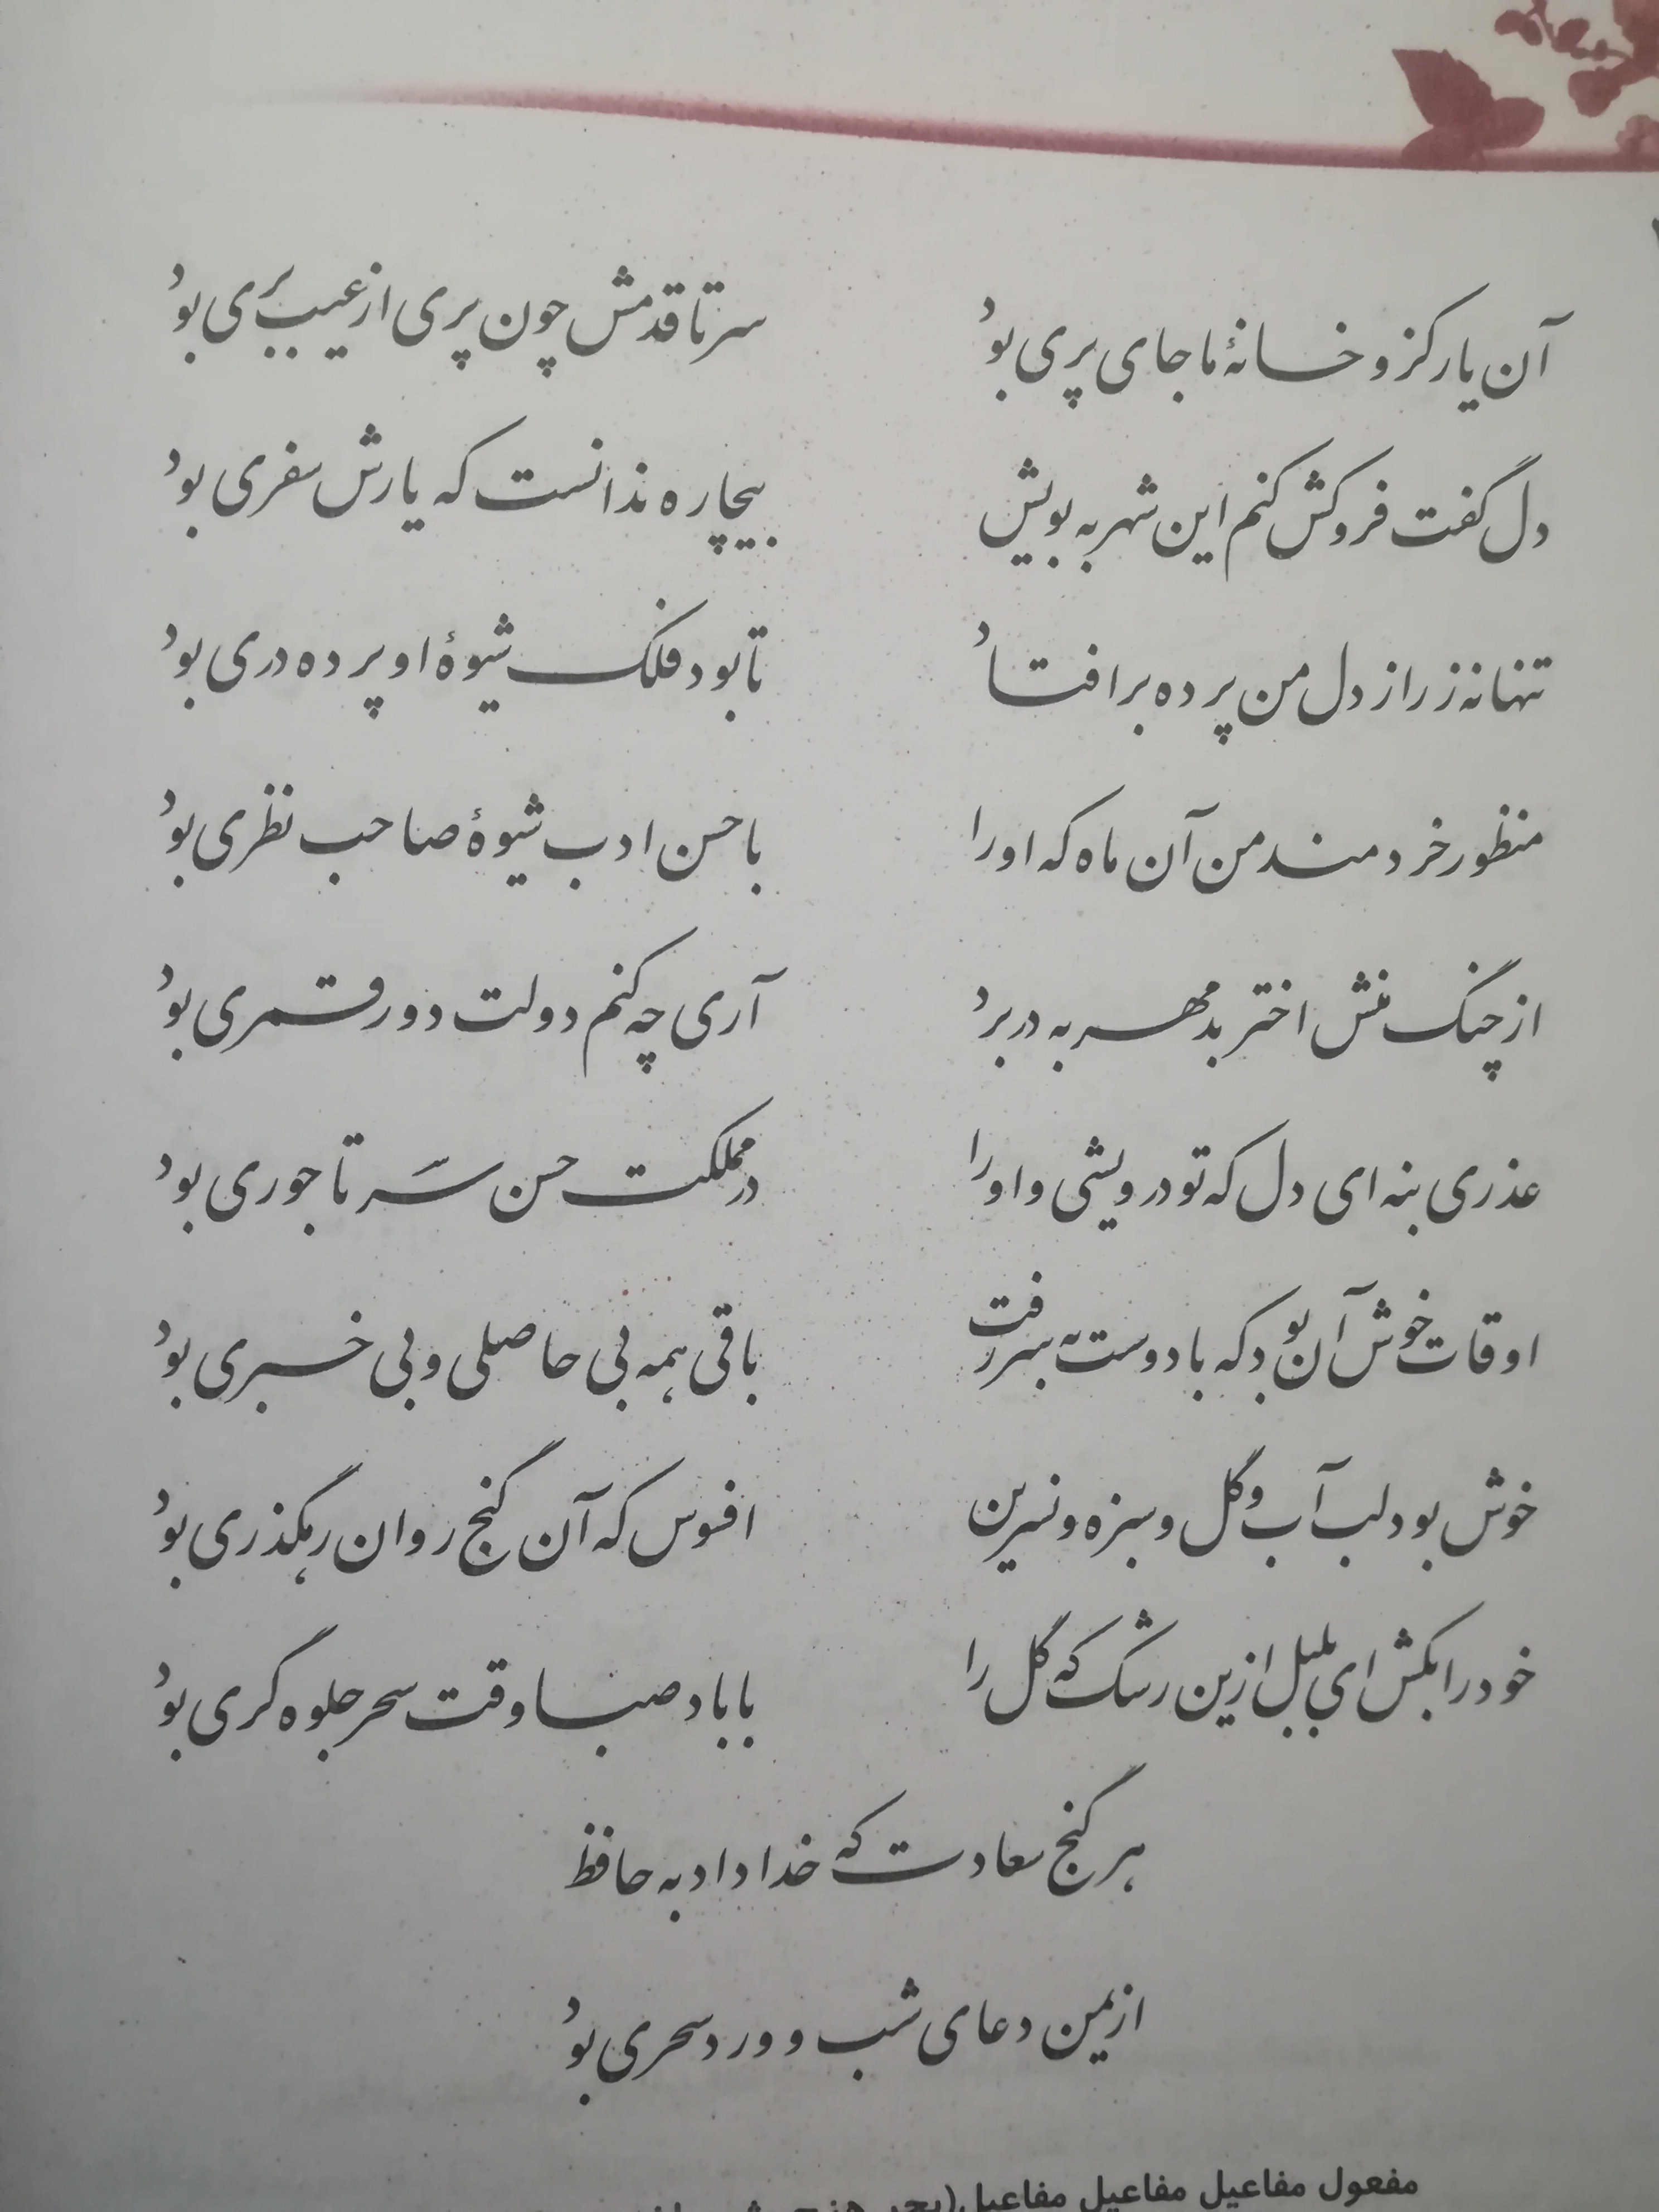 آن یار کزو خانهٔ ما جای پری بود
سر تا قدمش چون پری از عیب بَری بود
دل گفت فروکش کنم این شهر به بویش
بیچاره ندانست که یارش سفری بود
تنها نه ز راز دل من پرده برافتاد
تا بود فلک شیوهٔ او پرده دری بود
منظور خردمند من آن ماه که او را
با حسن ادب شیوهٔ صاحب نظری بود
از چنگ منش اختر بدمهر به در برد
آری چه کنم دولت دور قمری بود
عذری بنه ای دل که تو درویشی و او را
در مملکت حسن سَر تاجوری بود
اوقات خوش آن بود که با دوست به سر رفت
باقی همه بی حاصلی و بی خبری بود
خوش بود لب آب و گل و سبزه و نسرین
افسوس که آن گنج روان رهگذری بود
خود را بکش ای بلبل ازین رشک که گل را
با باد صبا وقت سحر جلوه گری بود
هر گنج سعادت که خدا داد به حافظ
از یمن دعای شب و ورد سحری بود
مفعول مفاعیل مفاعیل مفاعیل (بحر هزج